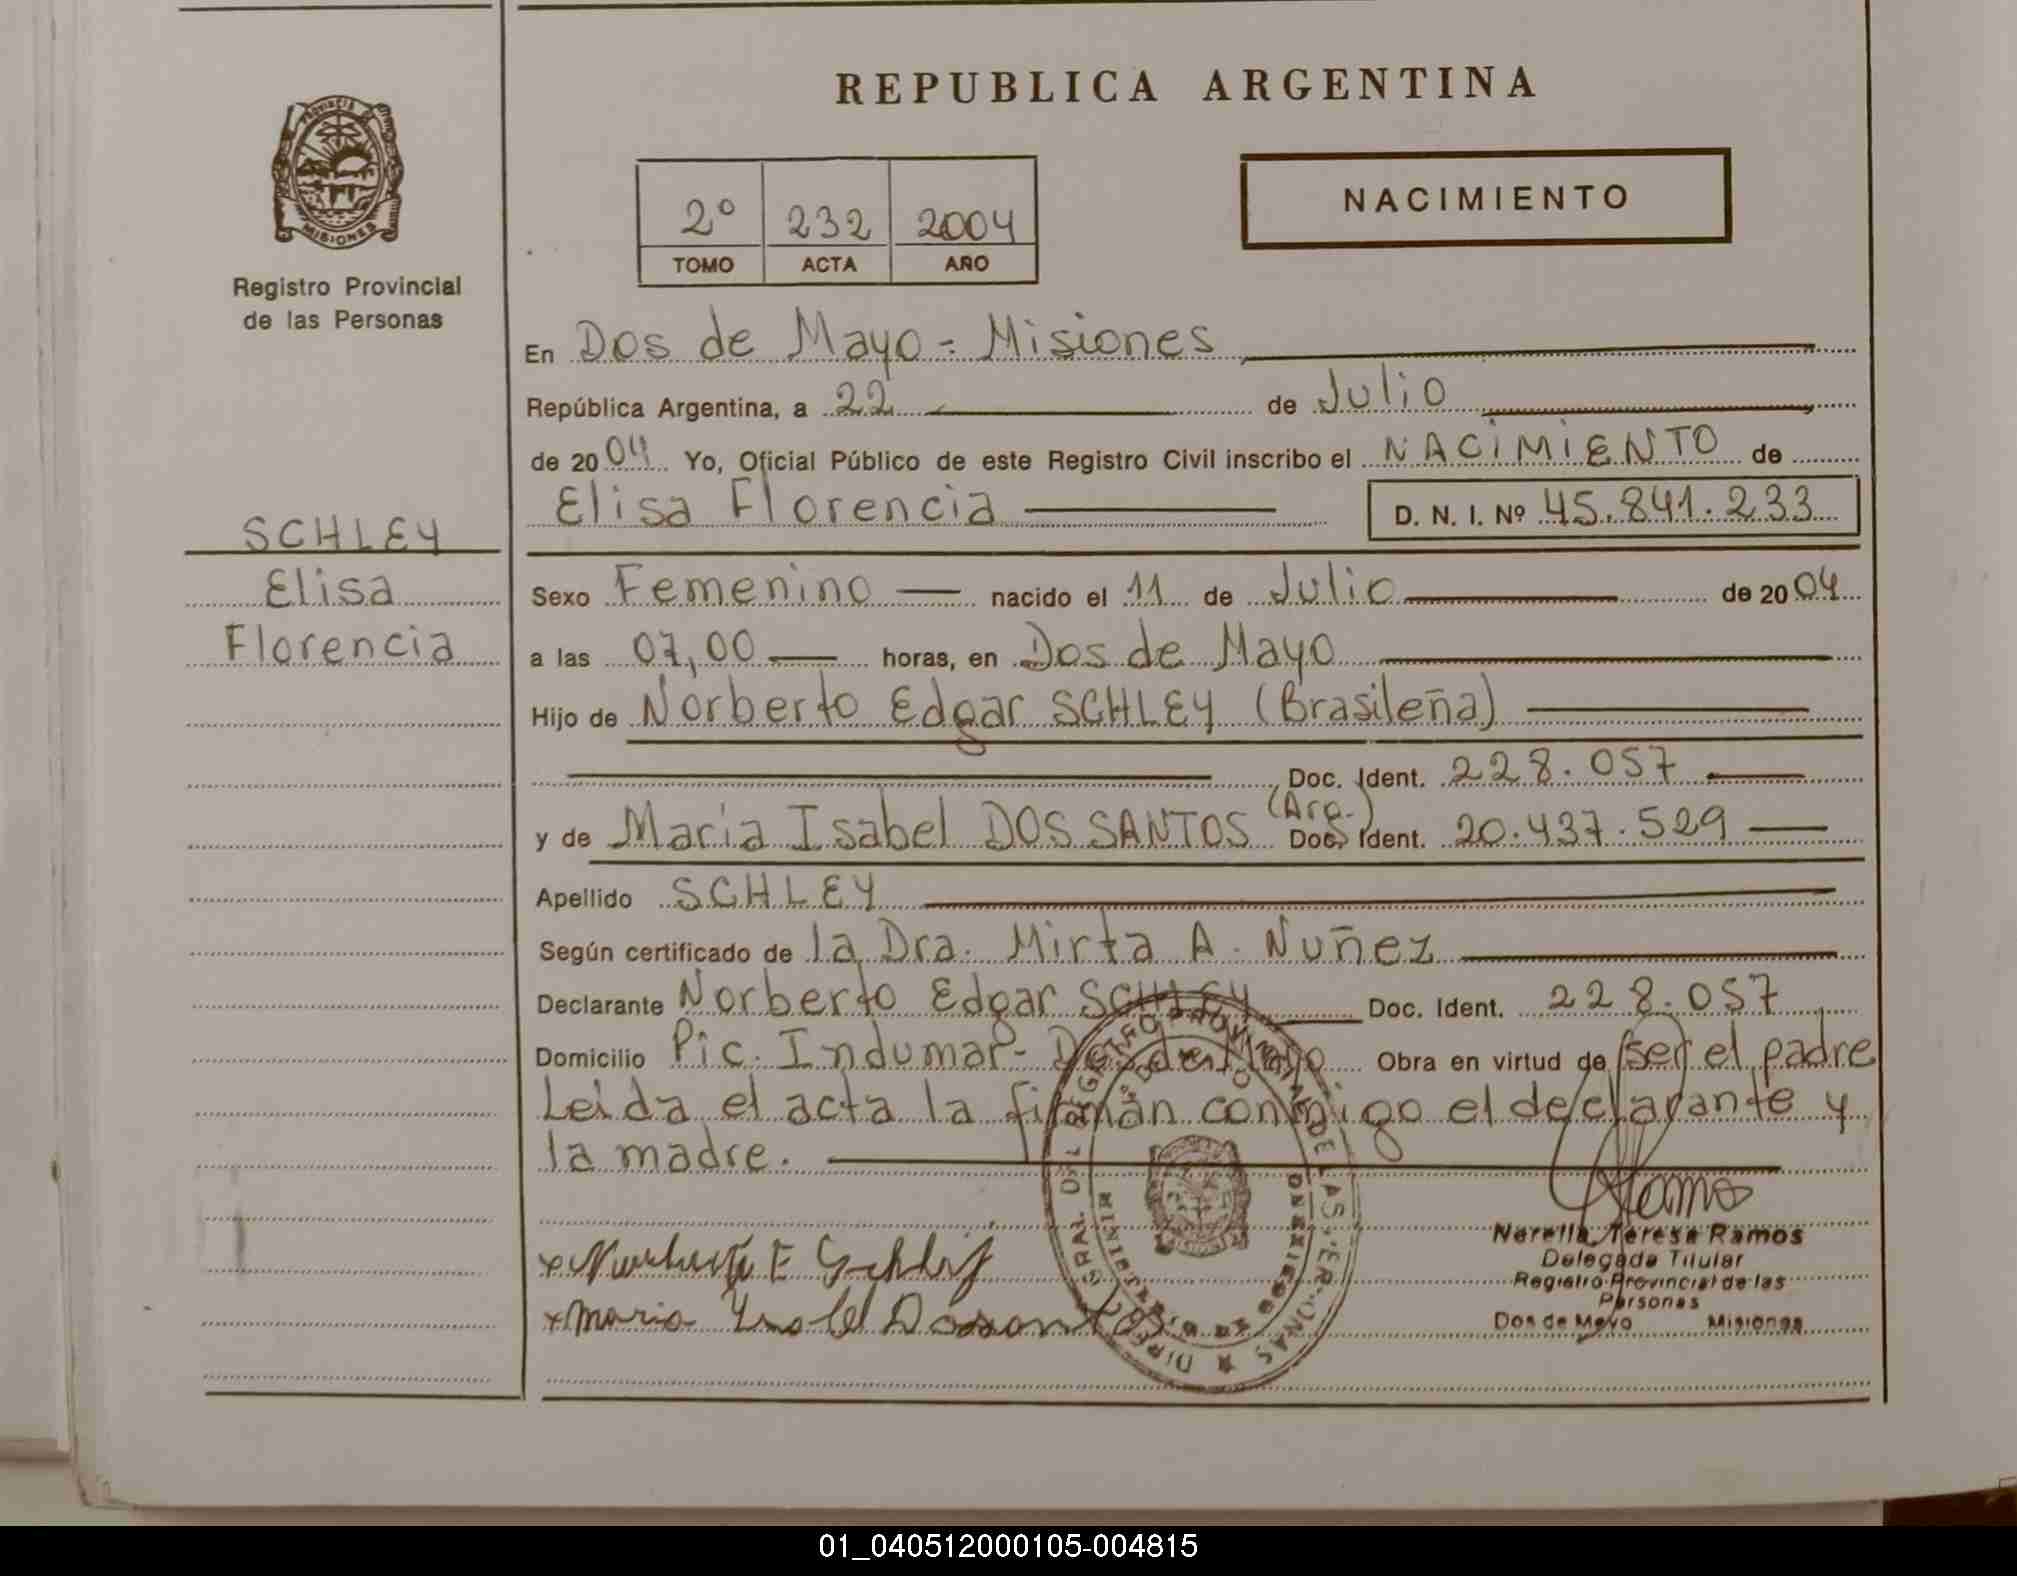 REPUBLICA ARGENTINA
PROVINCIA
MISIONES
Registro Provincial
de las Personas
2º 232 2004
TOMO ACTA AÑO
NACIMIENTO
En Dos de Mayo - Misiones
República Argentina, a 22 de Julio
de 2004 Yo, Oficial Público de este Registro Civil inscribo el NACIMIENTO de
Elisa Florencia D. N. I. Nº 45.841.233
SCHLEY
Elisa
Florencia
Sexo Femenino nacido el 11 de Julio de 2004
a las 07,00 horas, en Dos de Mayo
Hijo de Norberto Edgar SCHLEY (Brasileña)
Doc. Ident. 228.057
y de Maria Isabel DOS SANTOS (Arg.) Doc. Ident. 20.437.529
Apellido SCHLEY
Según certificado de la Dra. Mirta A. Nuñez
Declarante Norberto Edgar SCHLEY Doc. Ident. 228.057
Domicilio Pic. Indumar - Dos de Mayo Obra en virtud de ser el padre
Leida el acta la firman conmigo el declarante y
la madre.
x Norberto E Schley
x maria Ysabel Dossantos
Ramos
Nerella Teresa Ramos
Delegada Titular
Registro Provincial de las
Personas
Dos de Mayo Misiones
01_040512000105-004815